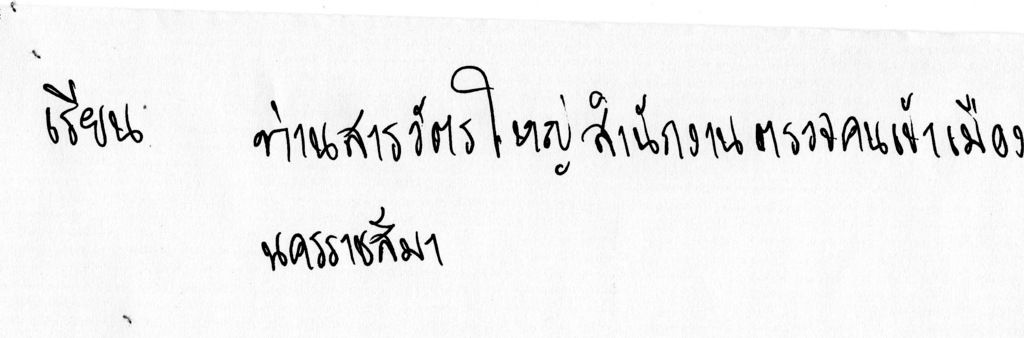 เรียน ท่านสารวัตรใหญ่ สำนักงานตรวจคนเข้าเมือง
นครราชสีมา